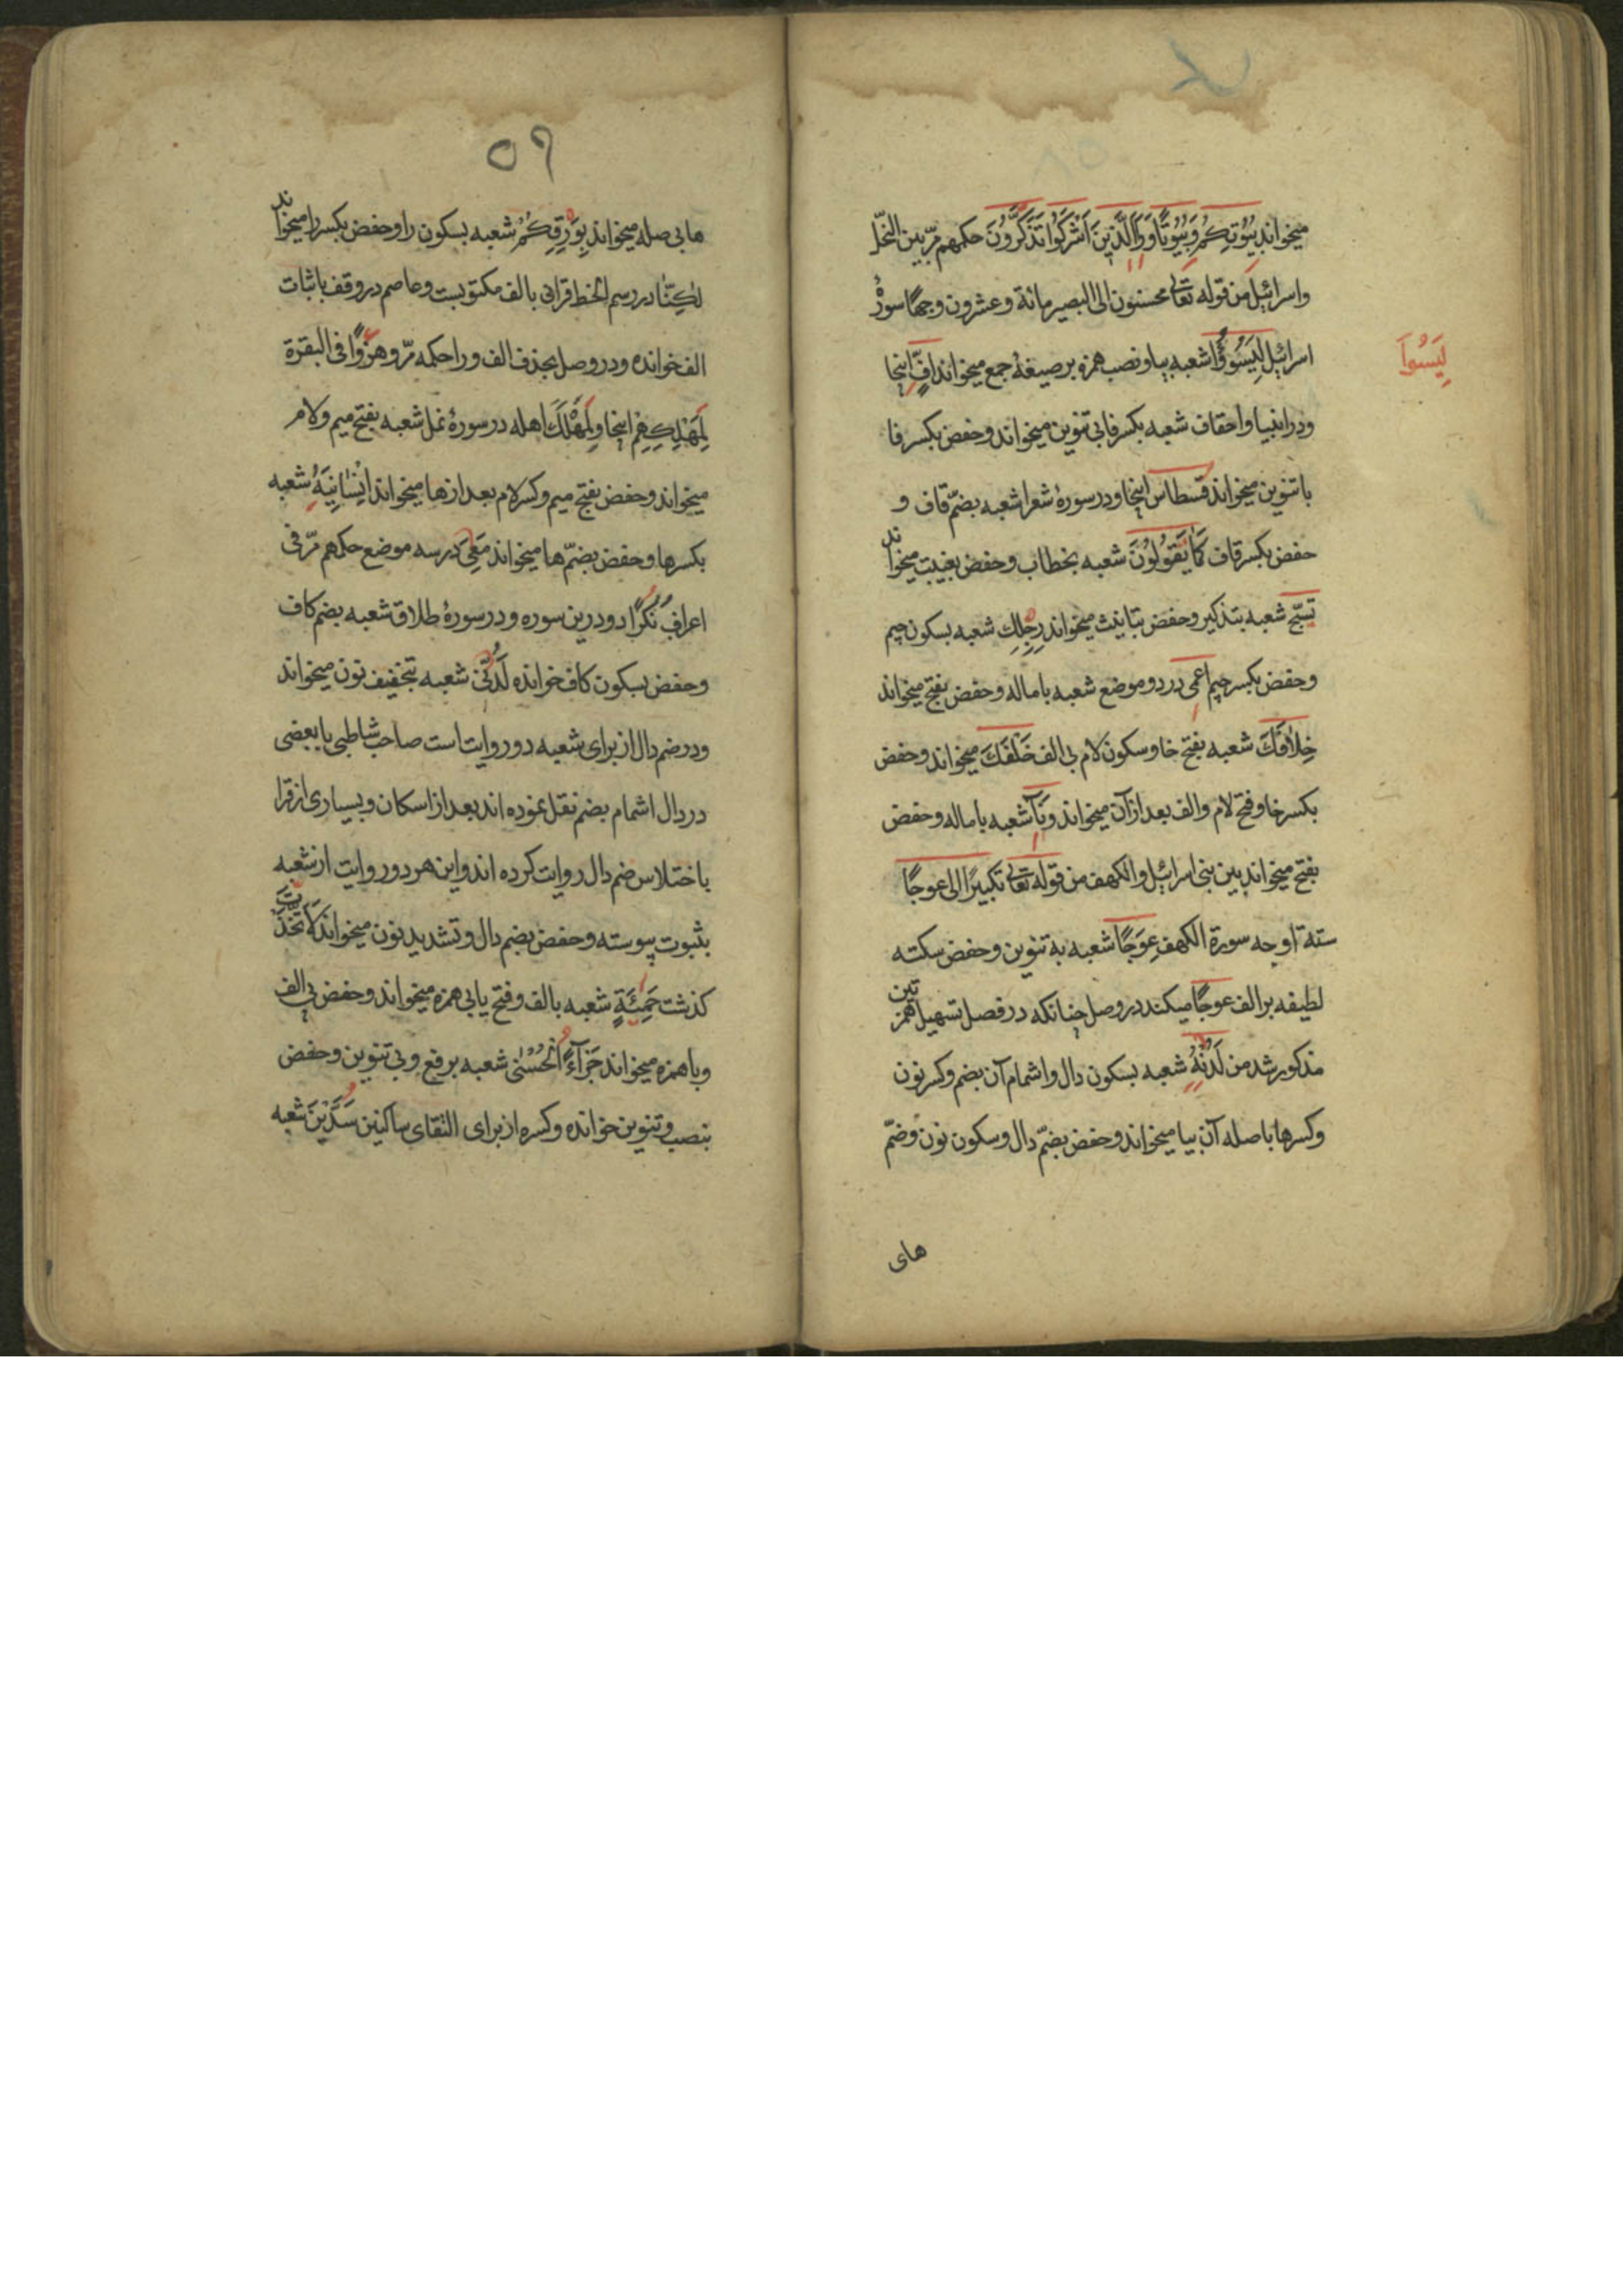 میخواند بُیُوتِکُم وَبُیُوتًا وَرَاَ الَّذِینَ اَشْرَکُوا تَذَکَّرُونَ حکمهم مرّ بین النحل
واسرائیل من قوله تعالی محسنون الی البصیر مائة وعشرون وجهًا سورهٔ
اسرائیل لِیَسُوؤُا شعبه بیا ونصب همزه بر صیغهٔ جمع میخواند اُفٍّ اینجا
لِیَسُواَ
ودر انبیا واحقاف شعبه بکسر فا بی تنوین میخواند وحفض بکسر فا
با تنوین میخواند قسطاس اینجا ودر سورهٔ شعرا شعبه بضمّ قاف و
حفض بکسر قاف کَمَا یَقُولُونَ شعبه بخطاب وحفض بغیبت میخواند
تسبّح شعبه بتذکیر وحفض بتانیث میخواند رَجِلِكَ شعبه بسکون جیم
وحفض بکسر جیم اعمی در دو موضع شعبه باماله وحفض بفتح میخواند
خِلَافَكَ شعبه بفتح خا وسکون لام بی الف خَلْفَكَ میخواند وحفض
بکسر خا وفتح لام والف بعد از آن میخواند وَنَآ شعبه باماله وحفض
بفتح میخواند بین بنی اسرائیل والکهف من قوله تعالی تکبیرًا الی عوجًا
ستة اوجه سورة الکهف عِوَجًا شعبه به تنوین وحفض سکته
لطیفه بر الف عوجًا میکند در وصل چنانکه در فصل تسهیل همزتین
مذکور شد من لَدُنْهُ شعبه بسکون دال واشمام آن بضم وکسر نون
وکسر ها با صله آن بیا میخواند وحفض بضمّ دال وسکون نون وضمّ
های
٥٩
ها بی صله میخواند بِوَرِقِکُمْ شعبه بسکون را وحفض بکسر را میخواند
لٰکِنَّا در رسم الخط قرانی بالف مکتوبست وعاصم در وقف باثبات
الف خوانده ودر وصل بحذف الف ورا حکمه مرّ وهزوًا فی البقرة
لِمَهْلِکِهِم اینجا ومَهْلَكَ اهله در سورهٔ نمل شعبه بفتح میم ولام
میخواند وحفض بفتح میم وکسر لام بعد از ها میخواند اَنْسَانِیهُ شعبه
بکسر ها وحفض بضمّ ها میخواند مَعِیَ در سه موضع حکمهم مرّ فی
اعراف نُکْرًا دو درین سوره ودر سورهٔ طلاق شعبه بضم کاف
وحفض بسکون کاف خوانده لَدُنِّی شعبه بتخفیف نون میخواند
ودر ضم دال از برای شعبه دو روایت است صاحب شاطبی با بعضی
در دال اشمام بضم نقل نموده اند بعد از اسکان وبسیاری از قرا
باختلاس ضم دال روایت کرده اند واین هر دو روایت از شعبه
بثبوت پیوسته وحفض بضم دال وتشدید نون میخواند لَتَّخَذْتَ
کذشت حَمِئَةٍ شعبه بالف وفتح یا بی همزه میخواند وحفض بی الف
وبا همزه میخواند جَزَآءً الْحُسْنٰی شعبه برفع وبی تنوین وحفض
بنصب وتنوین خوانده وکسره از برای التقای ساکنین سَدَّیْنَ شعبه